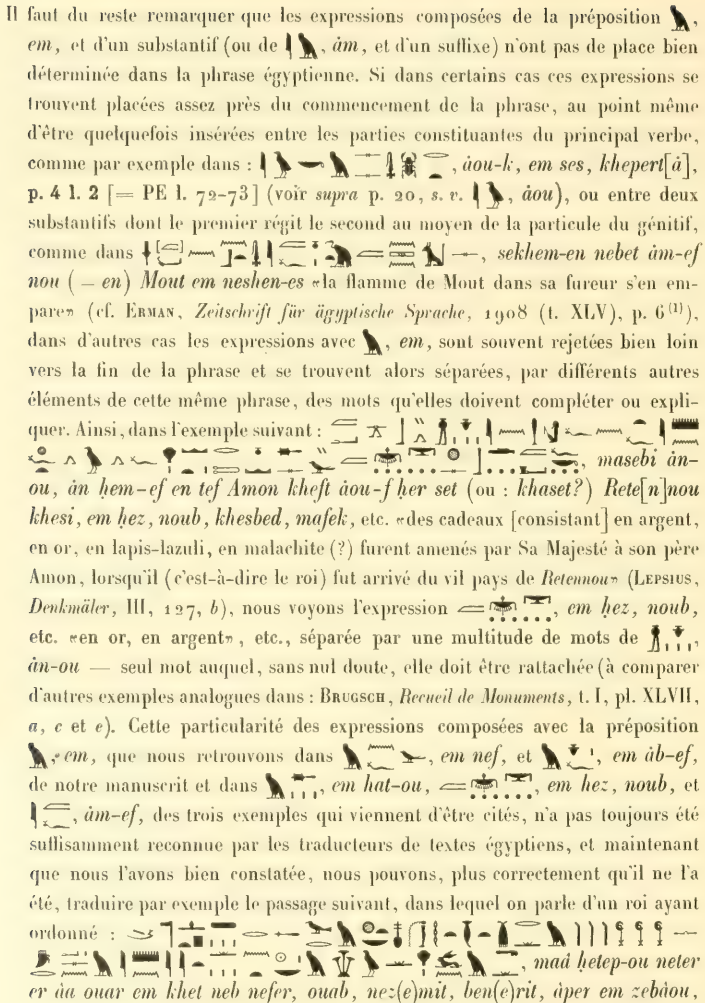 Il faut du reste remarquer que les expressions composées de la préposition 𓅓,
em, et d'un substantif (ou de 𓇋𓅓, ȧm, et d'un suffixe) n'ont pas de place bien
déterminée dans la phrase égyptienne. Si dans certains cas ces expressions se
trouvent placées assez près du commencement de la phrase, au point même
d'être quelquefois insérées entre les parties constituantes du principal verbe,
comme par exemple dans : , ȧou-k, em ses, khepert[ȧ],
p. 4 l. 2 [= PE l. 72-73] (voir supra p. 20, s. v. 𓇋𓅱, ȧou), ou entre deux
substantifs dont le premier régit le second au moyen de la particule du génitif,
comme dans , sekhem-en nebet ȧm-ef
nou (= en) Mout em neshen-es «la flamme de Mout dans sa fureur s'en em-
pare» (cf. ERMAN, Zeitschrift für ägyptische Sprache, 1908 (t. XLV), p. 6 (1)),
dans d'autres cas les expressions avec 𓅓, em, sont souvent rejetées bien loin
vers la fin de la phrase et se trouvent alors séparées, par différents autres
éléments de cette même phrase, des mots qu'elles doivent compléter ou expli-
quer. Ainsi, dans l'exemple suivant :
, masebi ȧn-
ou, ȧn ḥem-ef en tef Amon kheft ȧou-f ḥer set (ou : khaset?) Rete[n]nou
khesi, em ḥez, noub, khesbed, mafek, etc. «des cadeaux [consistant] en argent,
en or, en lapis-lazuli, en malachite (?) furent amenés par Sa Majesté à son père
Amon, lorsqu'il (c'est-à-dire le roi) fut arrivé du vil pays de Retennou» (LEPSIUS,
Denkmäler, III, 127, b), nous voyons l'expression , em ḥez, noub,
etc. «en or, en argent», etc., séparée par une multitude de mots de ,
ȧn-ou — seul mot auquel, sans nul doute, elle doit être rattachée (à comparer
d'autres exemples analogues dans : BRUGSCH, Recueil de Monuments, t. I, pl. XLVII,
a, c et e). Cette particularité des expressions composées avec la préposition
𓅓, em, que nous retrouvons dans , em nef, et , em ȧb-ef,
de notre manuscrit et dans , em hat-ou, , em ḥez, noub, et
, ȧm-ef, des trois exemples qui viennent d'être cités, n'a pas toujours été
suffisamment reconnue par les traducteurs de textes égyptiens, et maintenant
que nous l'avons bien constatée, nous pouvons, plus correctement qu'il ne l'a
été, traduire par exemple le passage suivant, dans lequel on parle d'un roi ayant
ordonné :
, maȧ ḥetep-ou neter
er āa ouar em khet neb nefer, ouab, nez(e)mit, ben(e)rit, āper em zebāou,